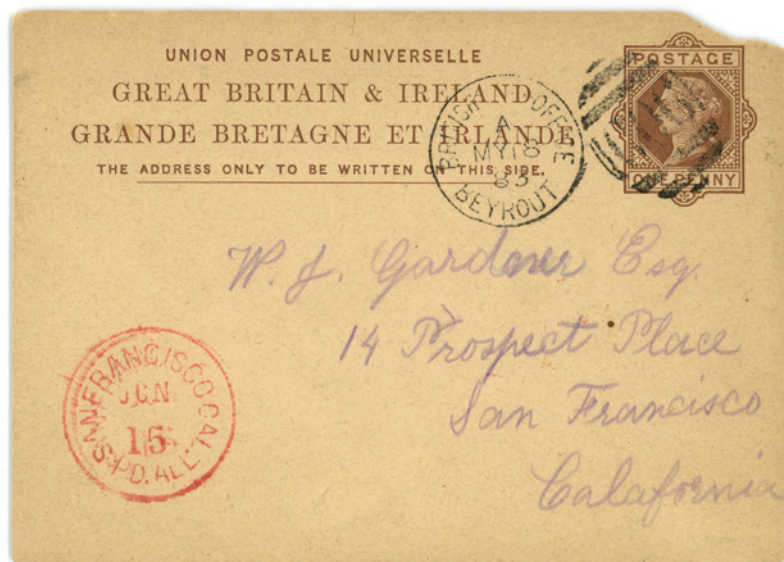 UNION POSTALE UNIVERSELLE
GREAT BRITAIN & IRELAND
GRANDE BRETAGNE ET IRLANDE
THE ADDRESS ONLY TO BE WRITTEN ON THIS SIDE.
POSTAGE
ONE PENNY
BRITISH OFFICE
A
MY 18
83
BEYROUT
W. J. Gardner Esq.
14 Prospect Place
San Francisco
Calafornia
SAN FRANCISCO CAL.
JUN
15
PD. ALL.